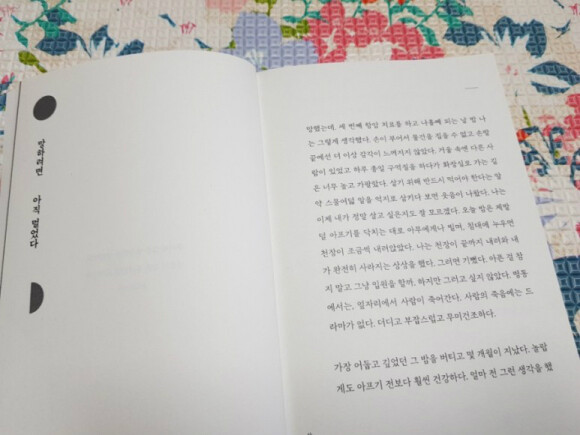 망했는데. 세 번째 항암 치료를 하고 나흘째 되는 날 밤 나
는 그렇게 생각했다. 손이 부어서 물건을 집을 수 없고 손발
끝에선 더 이상 감각이 느껴지지 않았다. 거울 속엔 다른 사
람이 있었고 하루 종일 구역질을 하다가 화장실로 가는 길
은 너무 높고 가팔랐다. 살기 위해 반드시 먹어야 한다는 알
약 스물여덟 알을 억지로 삼키다 보면 웃음이 나왔다. 나는
이제 내가 정말 살고 싶은지도 잘 모르겠다. 오늘 밤은 제발
덜 아프기를 닥치는 대로 아무에게나 빌며. 침대에 누우면
천장이 조금씩 내려앉았다. 나는 천장이 끝까지 내려와 내
가 완전히 사라지는 상상을 했다. 그러면 기뻤다. 아픈 걸 참
지 말고 그냥 입원을 할까. 하지만 그러고 싶지 않았다. 병동
에서는, 옆자리에서 사람이 죽어간다. 사람의 죽음에는 드
라마가 없다. 더디고 부잡스럽고 무미건조하다.
가장 어둡고 길었던 그 밤을 버티고 몇 개월이 지났다. 놀랍
게도 아프기 전보다 훨씬 건강하다. 얼마 전 그런 생각을 했